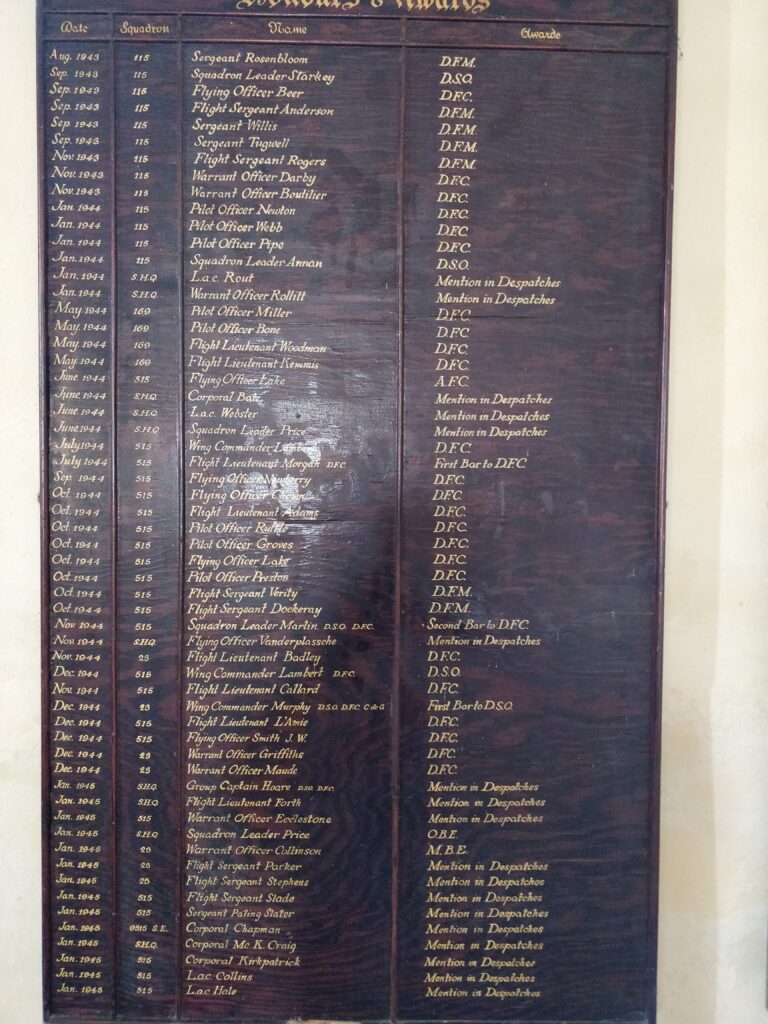 Honours & Awards
Date Squadron Name Awards
Aug. 1943 115 Sergeant Rosenbloom D.F.M.
Sep. 1943 115 Squadron Leader Starkey D.S.O.
Sep. 1943 115 Flying Officer Beer D.F.C.
Sep. 1943 115 Flight Sergeant Anderson D.F.M.
Sep. 1943 115 Sergeant Willis D.F.M.
Sep. 1943 115 Sergeant Tugwell D.F.M.
Nov. 1943 115 Flight Sergeant Rogers D.F.M.
Nov. 1943 115 Warrant Officer Darby D.F.C.
Nov. 1943 115 Warrant Officer Boutilier D.F.C.
Jan. 1944 115 Pilot Officer Newton D.F.C.
Jan. 1944 115 Pilot Officer Webb D.F.C.
Jan. 1944 115 Pilot Officer Pipe D.F.C.
Jan. 1944 115 Squadron Leader Annan D.S.O.
Jan. 1944 S.H.Q. L.a.c. Rout Mention in Despatches
Jan. 1944 S.H.Q. Warrant Officer Rollitt Mention in Despatches
May 1944 169 Pilot Officer Miller D.F.C.
May. 1944 169 Pilot Officer Bone D.F.C.
May. 1944 169 Flight Lieutenant Woodman D.F.C.
May. 1944 169 Flight Lieutenant Kemmis D.F.C.
June 1944 515 Flying Officer Lake A.F.C.
June. 1944 S.H.Q. Corporal Bate Mention in Despatches
June. 1944 S.H.Q. L.a.c. Webster Mention in Despatches
June. 1944 S.H.Q. Squadron Leader Price Mention in Despatches
July 1944 515 Wing Commander Lambert D.F.C.
July 1944 515 Flight Lieutenant Morgan D.F.C. First Bar to D.F.C.
Sep. 1944 515 Flying Officer D.F.C.
Oct. 1944 515 Flying Officer D.F.C.
Oct. 1944 515 Flight Lieutenant Adams D.F.C.
Oct. 1944 515 Pilot Officer D.F.C.
Oct. 1944 515 Pilot Officer Groves D.F.C.
Oct. 1944 515 Flying Officer Lake D.F.C.
Oct. 1944 515 Pilot Officer Preston D.F.C.
Oct. 1944 515 Flight Sergeant Verity D.F.M.
Oct. 1944 515 Flight Sergeant Dockeray D.F.M.
Nov 1944 515 Squadron Leader Martin D.S.O. D.F.C. Second Bar to D.F.C.
Nov. 1944 S.H.Q. Flying Officer Vanderplassche Mention in Despatches
Nov. 1944 23 Flight Lieutenant Badley D.F.C.
Dec. 1944 515 Wing Commander Lambert D.F.C. D.S.O.
Nov. 1944 515 Flight Lieutenant Callard D.F.C.
Dec. 1944 23 Wing Commander Murphy D.S.O. D.F.C. C de G First Bar to D.S.O.
Dec. 1944 515 Flight Lieutenant L'Amie D.F.C.
Dec. 1944 515 Flying Officer Smith J. W. D.F.C.
Dec. 1944 23 Warrant Officer Griffiths D.F.C.
Dec. 1944 23 Warrant Officer Maude D.F.C.
Jan. 1945 S.H.Q. Group Captain Hoare D.S.O. D.F.C. Mention in Despatches
Jan. 1945 S.H.Q. Flight Lieutenant Forth Mention in Despatches
Jan. 1945 515 Warrant Officer Ecclestone Mention in Despatches
Jan. 1945 S.H.Q. Squadron Leader Price O.B.E.
Jan. 1945 23 Warrant Officer Collinson M.B.E.
Jan. 1945 23 Flight Sergeant Parker Mention in Despatches
Jan. 1945 23 Flight Sergeant Stephens Mention in Despatches
Jan. 1945 515 Flight Sergeant Slade Mention in Despatches
Jan. 1945 515 Sergeant Pating Slater Mention in Despatches
Jan. 1945 9515 S.E. Corporal Chapman Mention in Despatches
Jan. 1945 S.H.Q. Corporal Mc K. Craig Mention in Despatches
Jan. 1945 515 Corporal Kirkpatrick Mention in Despatches
Jan. 1945 515 L.a.c. Collins Mention in Despatches
Jan. 1945 515 L.a.c Hale Mention in Despatches